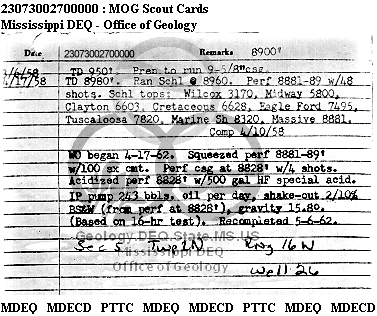 23073002700000 : MOG Scout Cards
Mississippi DEQ - Office of Geology
Date 23073002700000 Remarks 8900'
/6/58 TD 950'. Prep to run 9-5/8"csg.
4/17/58 TD 8980'. Ran Schl @ 8960. Perf 8881-89 w/48
shots. Schl tops: Wilcox 3170, Midway 5800,
Clayton 6603, Cretaceous 6628, Eagle Ford 7495,
Tuscaloosa 7820, Marine Sh 8320, Massive 8881.
Comp 4/10/58
WO began 4-17-62. Squeezed perf 8881-89'
w/100 sx cmt. Perf csg at 8828' w/4 shots.
Acidized perf 8828' w/500 gal HF special acid.
IP pump 243 bbls. oil per day, shake-out 2/10%
BS&W (from perf at 8828'), gravity 15.80.
(Based on 16-hr test). Recompleted 5-6-62.
Geology.DEQ.State.MS.US
Sec 5 Twp 2N Rng 16W
Mississippi DEQ
Office of Geology
Well 26
MDEQ MDECD PTTC MDEQ MDECD PTTC MDEQ MDECD